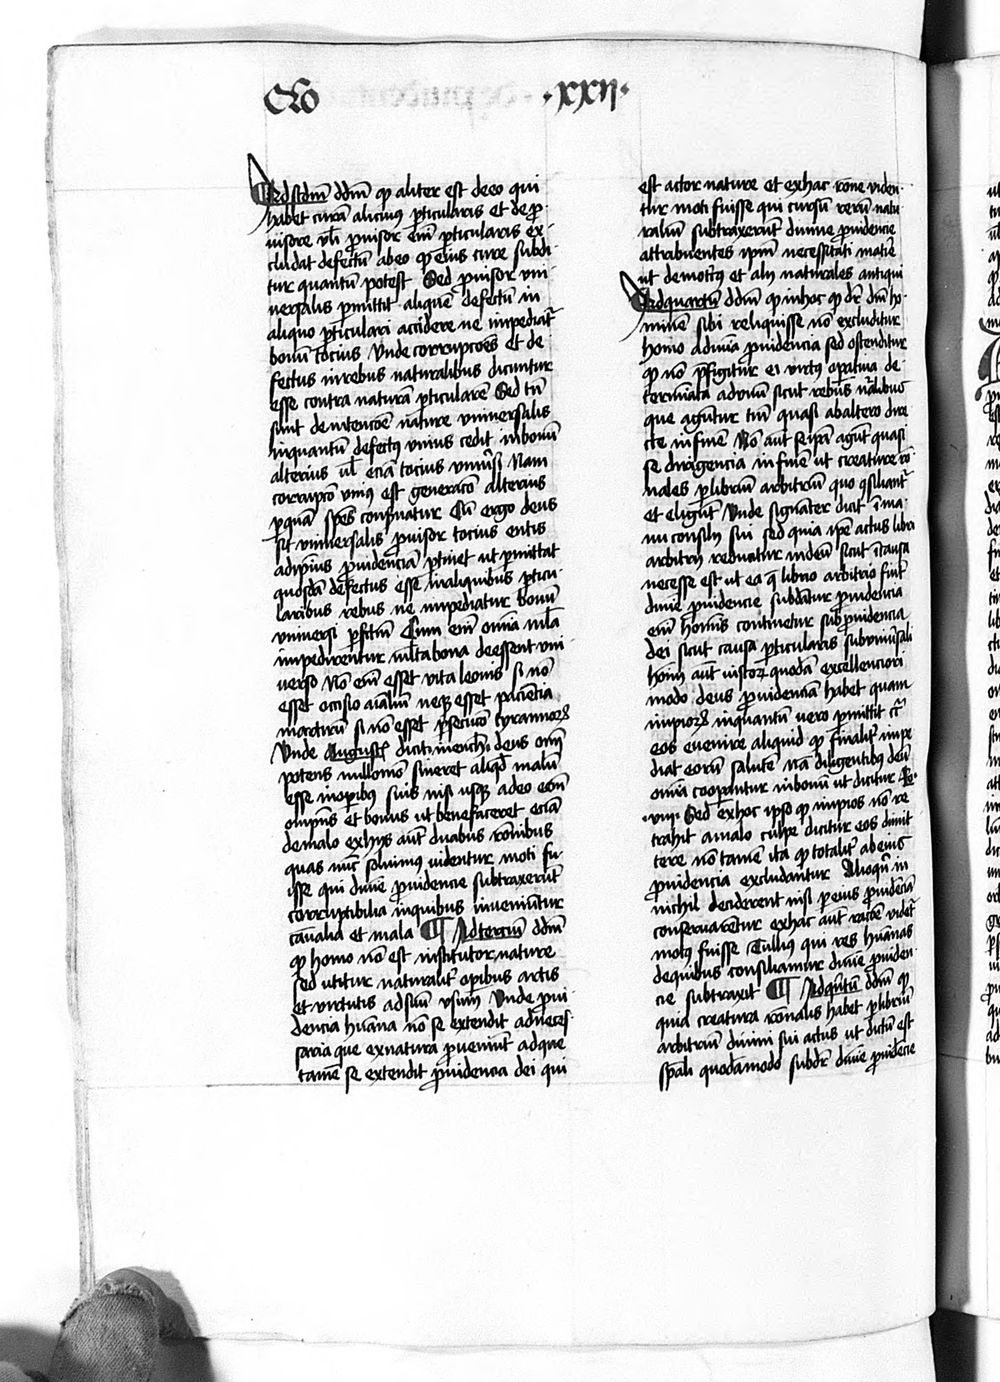 Qō · xxij ·
¶ Ad scdm̄ ddm̄ qͥ aliter est de eo qui
habet curā alicuiꝰ p̱ticularis et de p̱
uisore vłi p̱uisor em̄ p̱ticularis ex
cludat defectū ab eo qͥ eius cure subdi
tur quantū potest Sed p̱uisor vni
uersalis p̱mittit aliquē defectū in
aliquo p̱ticulari accidere ne impediat᷑
bonū tocius Unde corrupcōes et de
fectus in rebus naturalibus dicuntur
esse contra naturā p̱ticularē Sed tn̄
sunt de intencōe nature vniuersalis
inquantū defectꝰ vnius cedit in bonū
alterius ul̄ eciā tocius vniūsi Nam
corrupcō vniꝰ est generacō alterius
p̱ quā sp̄es conseruatur Cū ergo deus
sit vniuersalis p̱uisor tocius entis
ad ipsius p̱uidenciā p̱tinet ut p̱mittat
quosdā defectus esse in aliquibus p̱ticu
laribus rebus ne impediatur bonū
vniuersi p̱fectū Cum em̄ om̄ia mala
impedirentur ml̄ta bona deessent vni
uerso Nō em̄ esset vita leonis si nō
esset occisio aīaliū neqꝫ esset paciencia
martirū si nō esset p̱secucō tyrannoꝝ
Unde Augustꝰ dicit in ench. deus om̄i
potens nullomō sineret aliqd̄ malū
esse in opibꝰ suis nisi usqꝫ adeo eēt
om̄ip̄ns et bonus ut benefaceret eciā
de malo ex hijs aut̄ duabus rōnibus
quas nūc soluimꝰ uidentur moti fu
isse qui diuine p̱uidencie subtraxerūt
corruptibilia in quibus inueniūtur
cāualia et mala ¶ Ad terciū ddm̄
qͥ homo nō est institutor nature
sed utitur naturalit᷑ op̱ibus artis
et virtutis ad suū vsum Unde p̱ui
dencia hūana nō se extendit ad neces
saria que ex natura p̱ueniūt ad que
tamē se extendit p̱uidencia dei qui
est actor nature et ex hac rōne viden
tur moti fuisse qui cursū rerū natu
raliū subtraxerūt diuine p̱uidencie
attribuentes ip̄m necessitati matīe
ut democritꝰ et alij naturales antiqui
¶ Ad quartū ddm̄ qͥ in hoc qͥ dr̄ dm̄ ho
minē sibi reliquisse nō excluditur
homo a diuīa p̱uidencia sed ostenditur
qͥ nō p̄figitur ei virtus op̱atiua de
terminata ad vnū sicut rebus nālibus
que agūtur tm̄ quasi ab altero dire
cte in finē Nō aut̄ seip̄a agūt quasi
se dirigencia in finē ut creature rō
nales p̱ libriū arbitriū quo ɔsiliant᷑
et eligūt Unde signāter dicit ī ma
nu consilij sui Sed quia ip̄e actus libri
arbitrij reducatur in deū sicut ī causā
necesse est ut ea q̄ librio arbitrio fiūt
diuīe p̱uidencie subdātur p̱uidēcia
em̄ hominis continetur sub p̱uidencia
dei sicut causa p̱ticularis sub vniūsali
hoim̄ aut̄ iustoꝝ quodā excellenciori
modo deus p̱uidenciā habet quam
impioꝝ inquantū uero p̱mittit cͣ
eos euenire aliquid qͥ finalit᷑ impe
diat eorū salutē nā diligentibꝰ deū
om̄ia coop̱antur in bonū ut dicitur Ro.
viij. Sed ex hoc ipso qͥ impios nō re
trahit a malo culpe dicitur eos dimit
tere nō tamē ita qͥ totalit᷑ ab eius
p̱uidencia excludantur Alioqn̄ in
nichil deciderent nisi p̱ eius p̱uidēciā
conseruarētur ex hac aut̄ racōe videt᷑
motꝰ fuisse Tullius qui res hūanas
de quibus consiliamur diuīe p̱uiden
cie subtraxit ¶ Ad quītū ddm̄ qͥ
quia creatura rōnalis habet p̱ libriū
arbitriū diuim̄ sui actus ut dictū est
sp̄ali quodāmodo subdr̄ diuīe p̱uidēcie